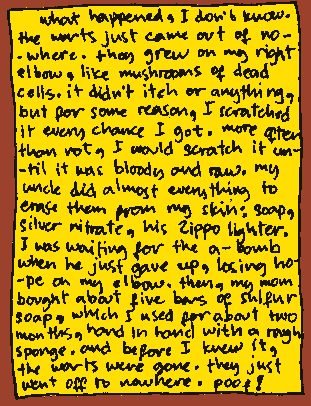 what happened, I don't know.
the warts just came out of no-
-where. they grew on my right
elbow, like mushrooms of dead
cells. it didn't itch or anything,
but for some reason, I scratched
it every chance I got. more often
than not, I would scratch it un-
-til it was bloody and raw. my
uncle did almost everything to
erase them from my skin: soap,
silver nitrate, his Zippo lighter.
I was waiting for the a-bomb
when he just gave up, losing ho-
-pe on my elbow. then, my mom
bought about five bars of sulfur
soap, which I used for about two
months, hand in hand with a rough
sponge. and before I knew it,
the warts were gone. they just
went off to nowhere. poof!